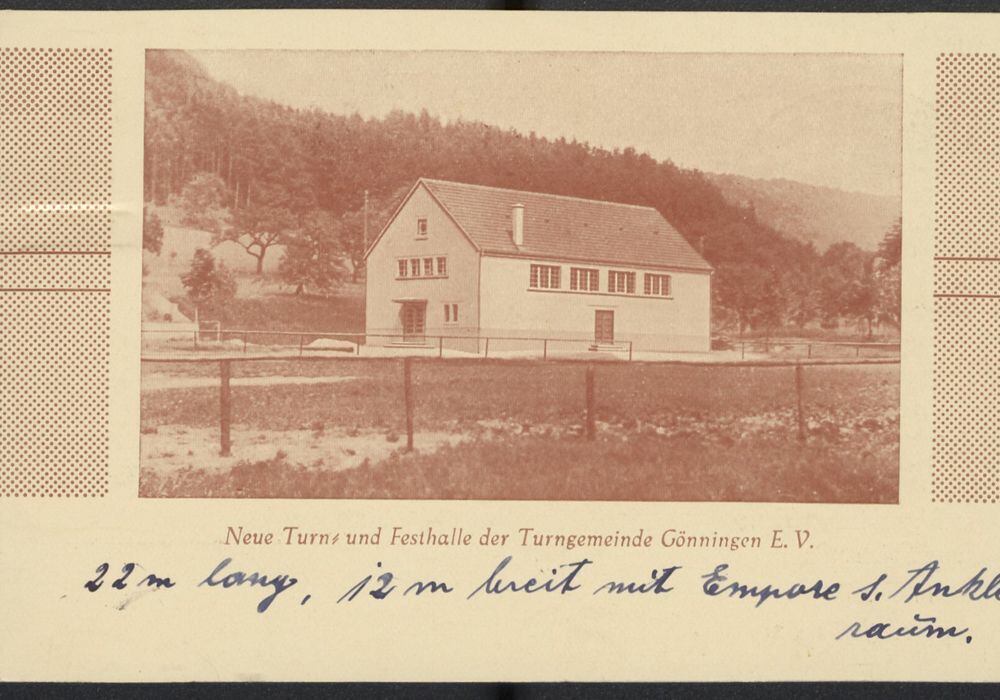 Neue Turn- und Festhalle der Turngemeinde Gönningen E. V.
22 m lang, 12 m breit mit Empore
raum.